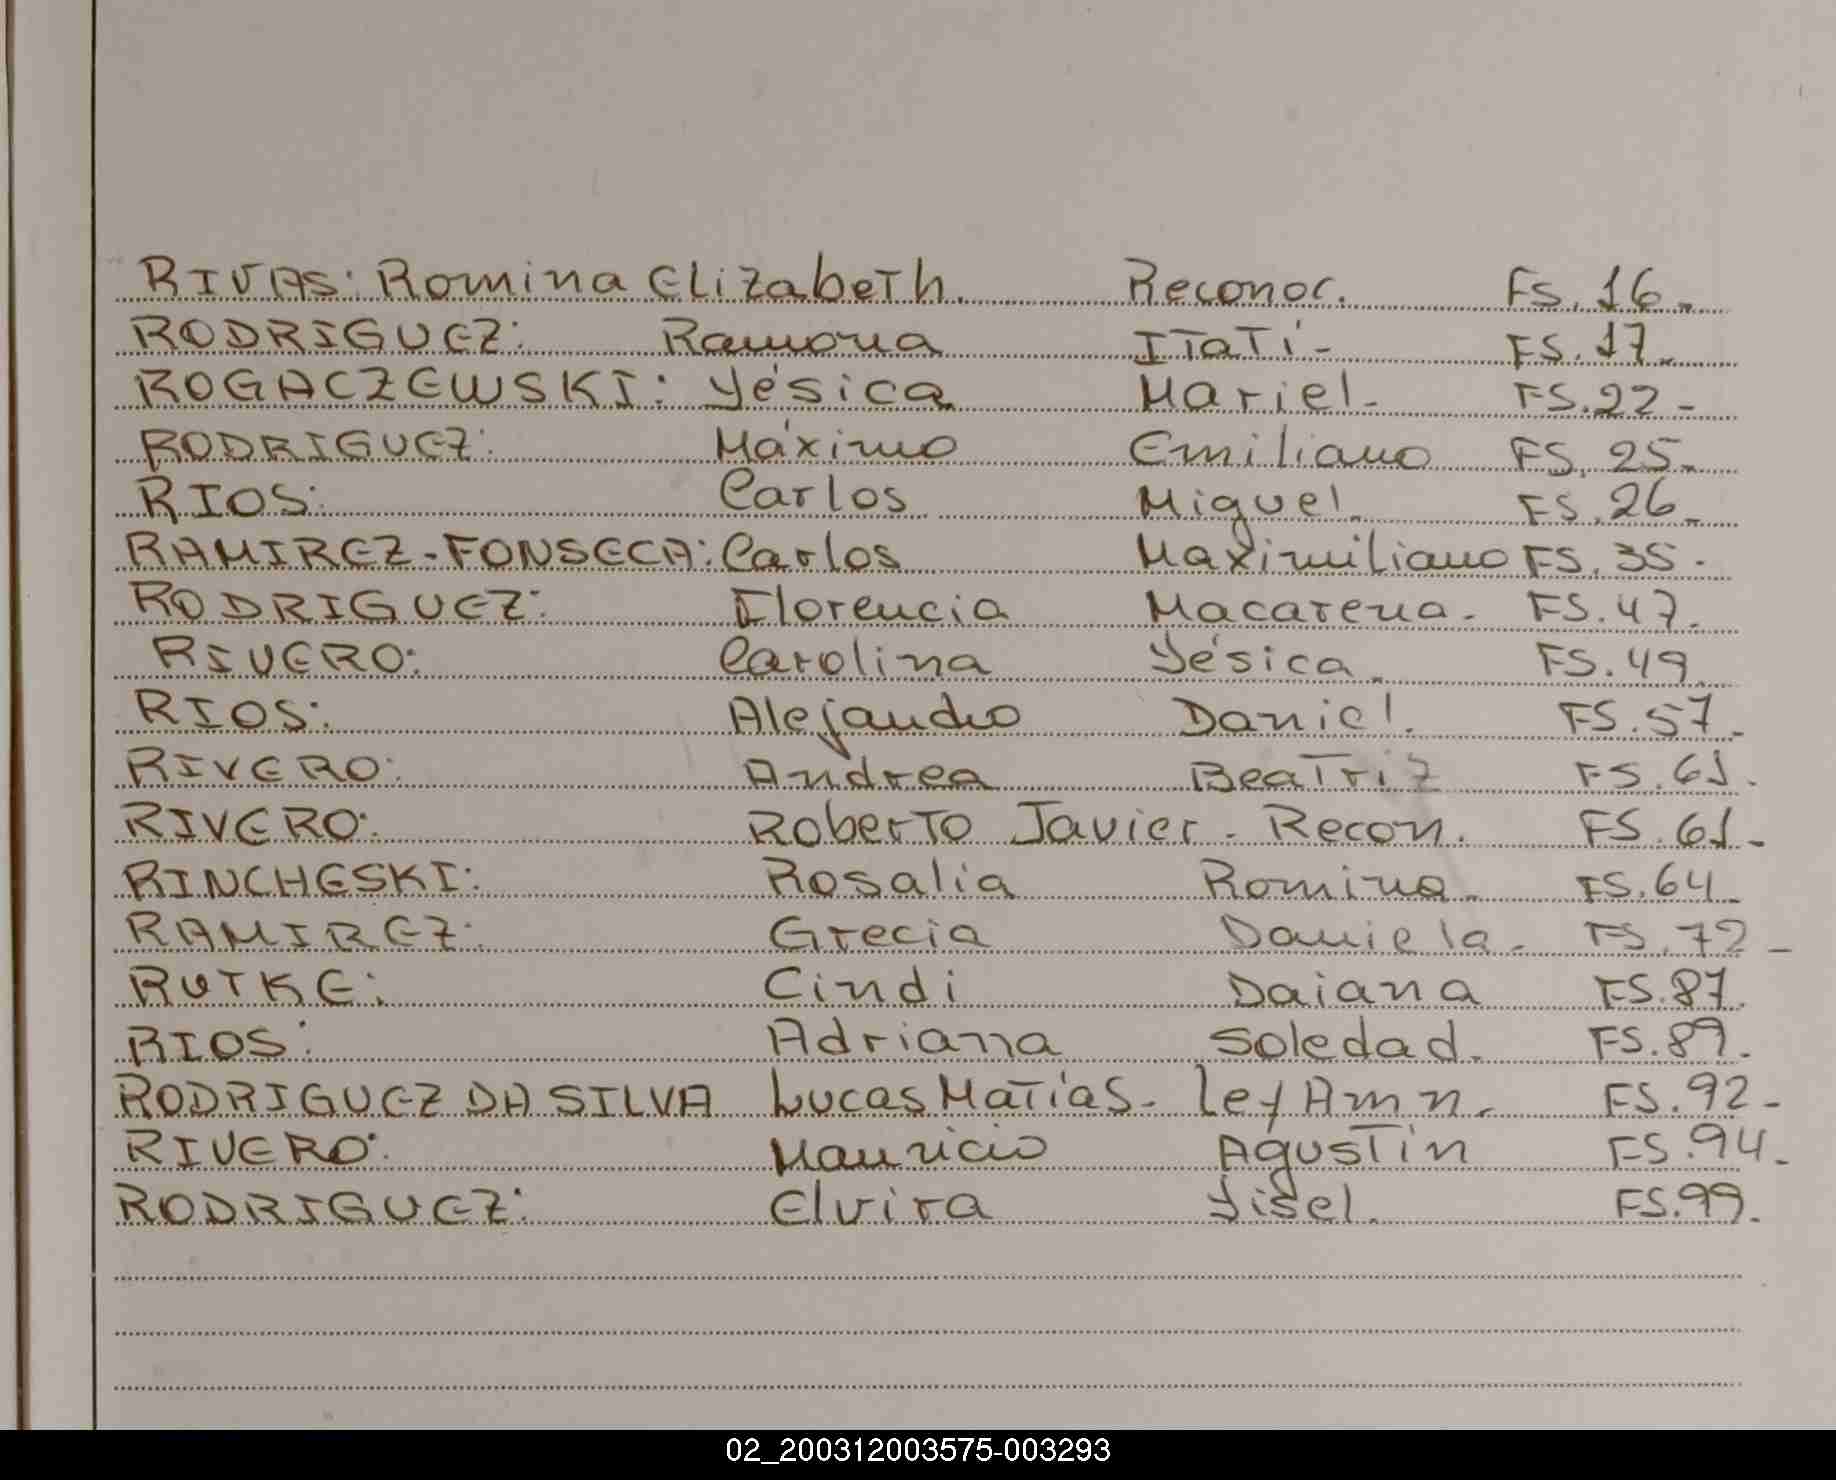 RIVAS: Romina Elizabeth. Reconoc. FS. 16.-
RODRIGUEZ: Ramona ITaTí- FS. 17.-
ROGACZEWSKI: Yésica Mariel.- FS.22-
RODRIGUEZ: Máximo Emiliano FS. 25.-
RIOS: Carlos Miguel. FS. 26.-
RAMIREZ-FONSECA: Carlos Maximiliano FS. 35.-
RODRIGUEZ: Florencia Macarena.- FS. 47.-
RIVERO: Carolina Yésica.- FS. 49.-
RIOS: Alejandro Daniel. FS. 57.-
RIVERO: Andrea BeaTriz FS. 61.
RIVERO: RoberTo Javier. Recon. FS. 61.-
RINCHESKI: Rosalia Romina.- FS. 64.-
RAMIREZ: Grecia Daniela.- FS. 72-
RUTKE: Cindi Daiana FS. 87.
RIOS: Adriana Soledad. FS. 89.
RODRIGUEZ DA SILVA Lucas MaTías. FS. 92.-
RIVERO: Mauricio AgusTín FS. 94.-
RODRIGUEZ: Elvira Yisel. FS. 99.
02_200312003575-003293